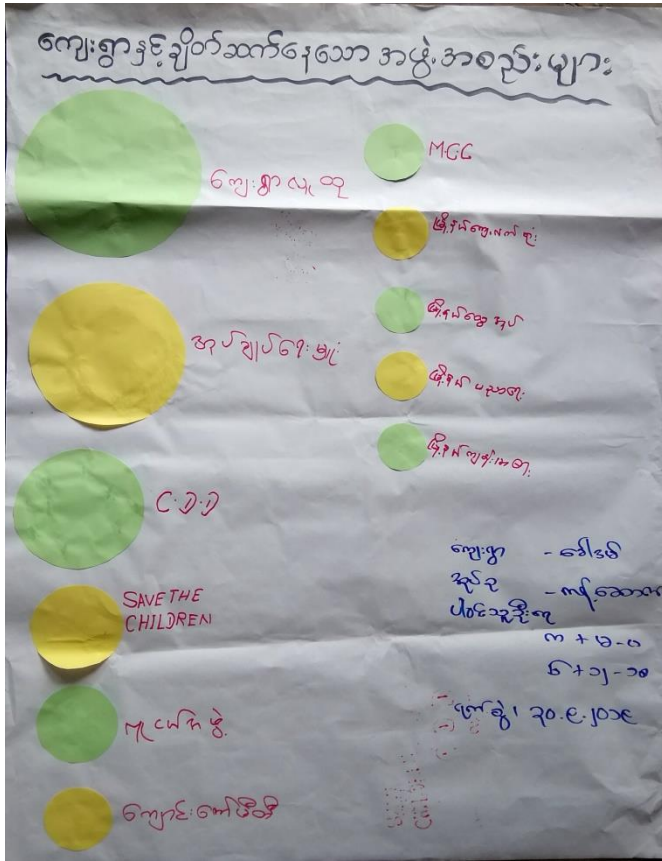 ကျေးရွာနှင့်ချိတ်ဆက်နေသော အဖွဲ့အစည်းများ
ကျေးရွာလူထု
အုပ်ချုပ်ရေးမှူး
C.D.D
SAVE THE
CHILDREN
လူငယ်အဖွဲ့
ကျောင်းကော်မတီ
M.C.C
မြို့နယ်ကျေးလက်ဦး
မြို့နယ်ထွေအုပ်
မြို့နယ်ပညာရေး
မြို့နယ်ကျန်းမာရေး
ကျေးရွာ - ခေါ်ဒမ်
အုပ်စု -
ပါဝင်သူဦးရေ
ကျ + မ - ပ
၆ + ၁၂ - ၁၈
ရက်စွဲ၊ ၃၀.၉.၂၀၁၉